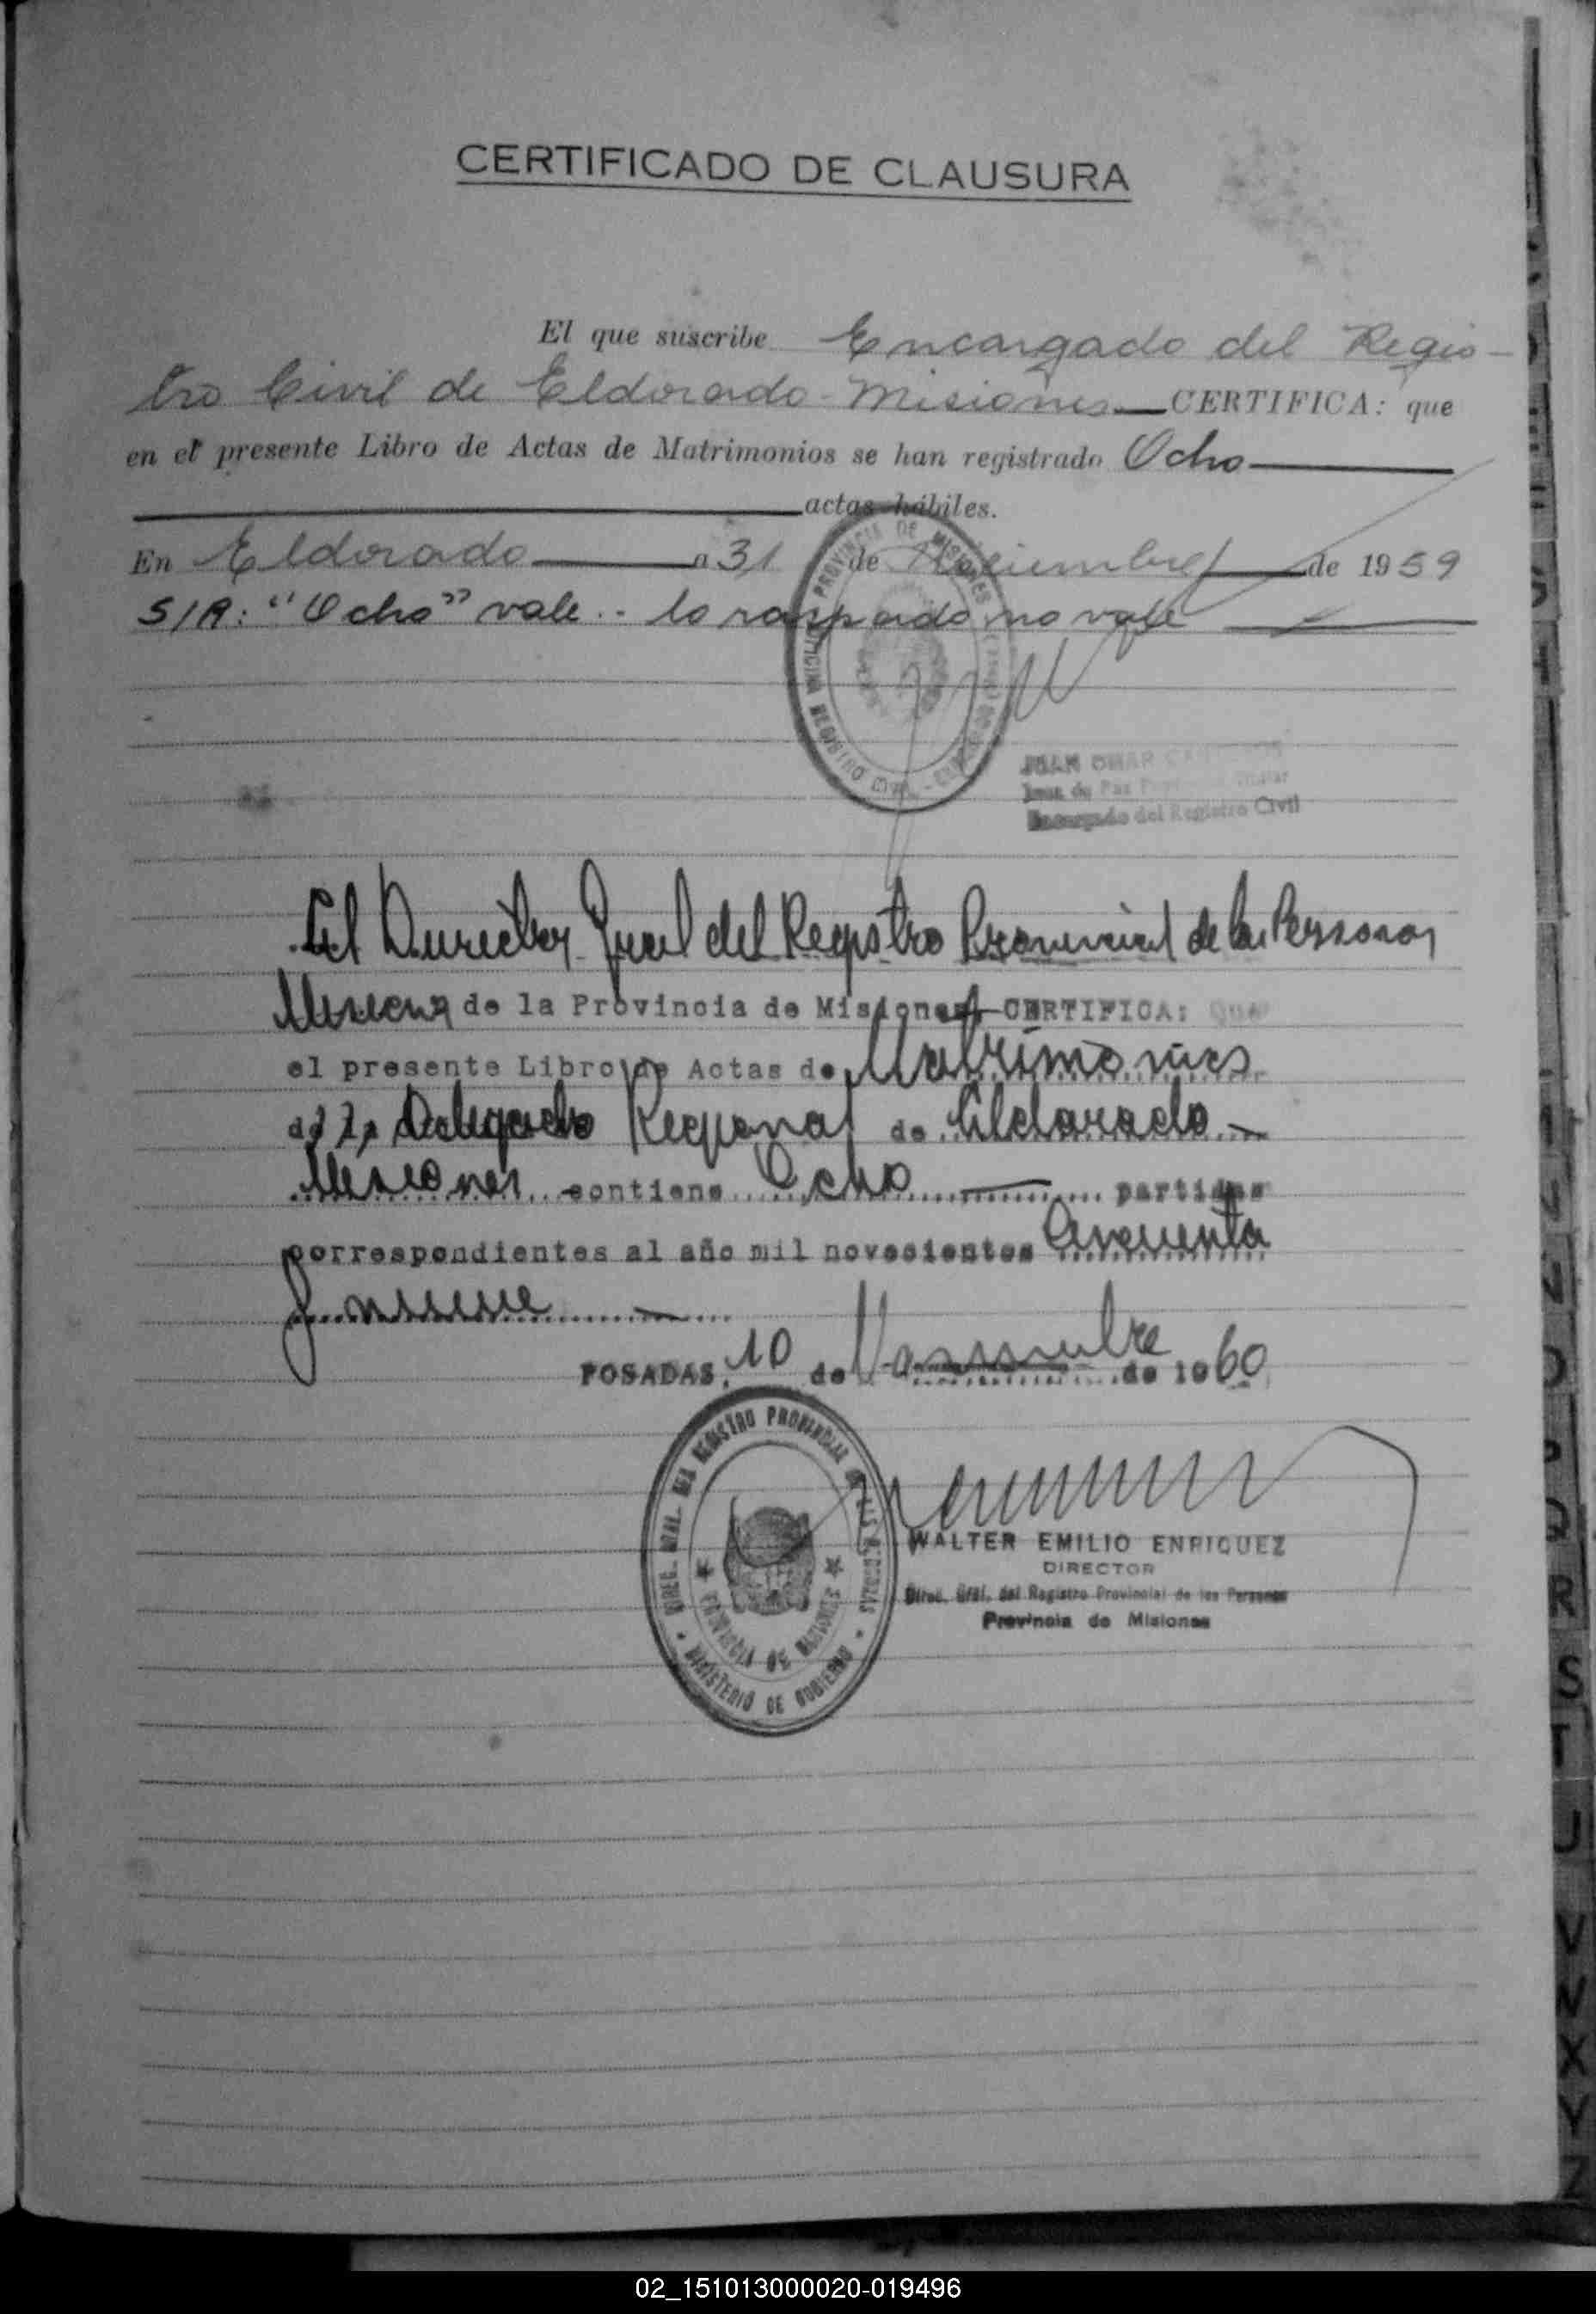 CERTIFICADO DE CLAUSURA
El que suscribe Encargado del Regis-
tro Civil de Eldorado - Misiones CERTIFICA: que
en el presente Libro de Actas de Matrimonios se han registrado Ocho
actas hábiles.
En Eldorado a 31 de Diciembre de 1959
S/R: "Ocho" vale.- lo raspado no vale
PROVINCIA DE MISIONES
REGISTRO CIVIL
JUAN OMAR
Juez de Paz
Encargado del Registro Civil
El Director Gral del Registro Provincial de las Personas
de la Provincia de Misiones CERTIFICA: Que
el presente Libro de Actas de Matrimonios
de la Delegación Regional de Eldorado -
Misiones contiene Ocho partidas
correspondientes al año mil novecientos Cincuenta
y nueve
POSADAS, 10 de Noviembre de 1960
DIREC. GRAL. DEL REGISTRO PROVINCIAL DE LAS PERSONAS
PROVINCIA DE MISIONES
MINISTERIO DE GOBIERNO
WALTER EMILIO ENRIQUEZ
DIRECTOR
Direc. Gral. del Registro Provincial de las Personas
Provincia de Misiones
R
S
T
U
V
W
X
Y
Z
02_151013000020-019496